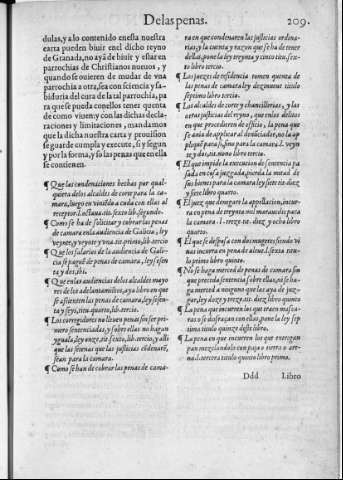 De las penas.
209.
dulas, y a lo contenido en esta nuestra
carta pueden biuir enel dicho reyno
de Granada, no aya de biuir y estar en
parrochias de Christianos nueuos, y
quando se ouieren de mudar de vna
parrochia a otra, sea con sciencia y sa-
biduria del cura de la tal parrochia, pa
ra que se pueda con ellos tener quenta
de como viuen y con las dichas decla-
raciones y limitaciones, mandamos
que la dicha nuestra carta y prouision
se guarde cumpla y execute, si y segun
y por la forma, y so las penas que en ella
se contienen.
¶ Que las condenaciones hechas por qual-
quiera delos alcaldes de corte para la ca-
mara, luego en viniédo a cuda con ellas al
receptor. l. octaua. tit. sexto lib. segundo.
¶ Como se ha de solicitar y cobrar las penas
de camara en la audiencia de Galizia, ley
veynte, y veynte y vna. tit. primo, lib. tercio
¶ Que los salarios de la audiencia de Gali-
zia se paguē de penas de camara, ley sesen
ta y dos, ibi.
¶ Que en las audiencias delos alcaldes mayo
res de los adelantamiētos, aya libro en que
se assienten las penas de camara, ley sesen-
ta y seys, titu. quarto, lib. tercio.
¶ Los corregidores no lleuen penas sin ser pri-
mero sentenciadas, y sobre ellas no hagan
yguala, ley onze, tit. sexto, lib. tercio, y alli
que las setenas que las justicias cōdenarē,
sean para la camara.
¶ Como se han de cobrar las penas de cama-
ra en que condenaren las justicias ordina-
rias, y la cuenta y razon que se ha de tener
dellas, pone la ley treynta y cinco titu. sex-
to, libro tercio.
¶ Los juezes de residencia tomen quenta de
las penas de camara ley diezinueue titulo
septimo libro tercio.
¶ Los alcaldes de corte y chancillerias, y las
otras justicias del reyno, que en los delitos
en que procedieren de officio, la pena que
se auia de applicar al denūciador, no la ap
pliquē para si, sino para la camara. l. veyn
te y dos, tit. nono libro tercio.
¶ El que impide la execucion de sentencia pa
sada en cosa juzgada, pierda la mitad de
sus bienes para la camara ley siete tit. diez
y siete libro quarto.
¶ El juez que denegare la appellacion, incur-
ra en pena de treynta mil marauedis para
la camara. l. treze. tit. diez y ocho libro
quarto.
¶ El que se desposa con dos mugeres siendo vi
uas incurra en pena de aleue. l. sexta. titu-
lo primo libro quinto.
¶ No se haga merced de penas de camara sin
que preceda sentencia sobre ellas, ni se ha-
ga merced a ninguno que las aya de juz-
gar, ley doze y treze. tit. diez libro quinto
¶ La pena que incurren los que traen masca-
ras o se disfraçan con ellas, pone la ley sep
tima titulo quinze deste libro.
¶ La pena en que incurren los que entregan
pan mezclandolo con paja o tierra o are-
na. l. tercera titulo quinto libro primo.
Ddd Libro